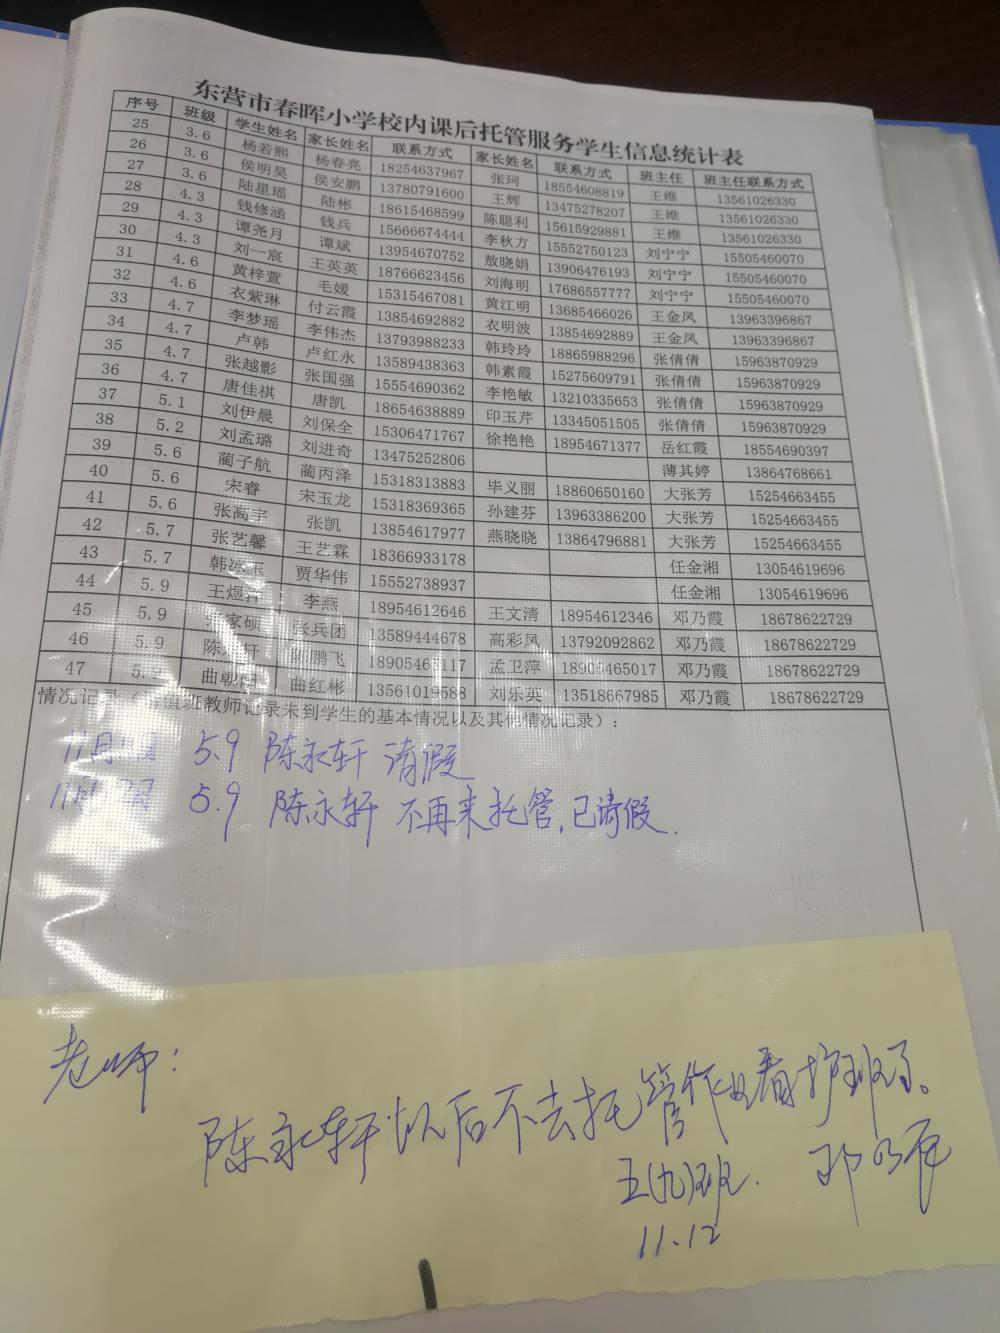 东营市春晖小学校内课后托管服务学生信息统计表
序号 班级 学生姓名 家长姓名 联系方式 家长姓名 联系方式 班主任 班主任联系方式
25 3.6 杨若熙 杨春亮 18254637967 张珂 18554608819 王维 13561026330
26 3.6 侯明昊 侯安鹏 13780791600 王辉 13475278207 王维 13561026330
27 3.6 陆星瑶 陆彬 18615468599 陈聪利 15615929881 王维 13561026330
28 4.3 钱修涵 钱兵 15666674444 李秋方 15552750123 刘宁宁 15505460070
29 4.3 谭尧月 谭斌 13954670752 敖晓娟 13906476193 刘宁宁 15505460070
30 4.3 刘一宸 王英英 18766623456 刘海明 17686557777 刘宁宁 15505460070
31 4.6 黄梓萱 毛媛 15315467081 黄江明 13685466026 王金凤 13963396867
32 4.6 衣紫琳 付云霞 13854692882 衣明波 13854692889 王金凤 13963396867
33 4.7 李梦瑶 李伟杰 13793988233 韩玲玲 18865988296 张倩倩 15963870929
34 4.7 卢韩 卢红永 13589438363 韩素霞 15275609791 张倩倩 15963870929
35 4.7 张越影 张国强 15554690362 李艳敏 13210335653 张倩倩 15963870929
36 4.7 唐佳祺 唐凯 18654638889 印玉芹 13345051505 张倩倩 15963870929
37 5.1 刘伊晨 刘保全 15306471767 徐艳艳 18954671377 岳红霞 18554690397
38 5.2 刘孟璐 刘进奇 13475252806 薄其婷 13864768661
39 5.6 蔺子航 蔺丙泽 15318313883 毕义丽 18860650160 大张芳 15254663455
40 5.6 宋睿 宋玉龙 15318369365 孙建芬 13963386200 大张芳 15254663455
41 5.6 张高宇 张凯 13854617977 燕晓晓 13864796881 大张芳 15254663455
42 5.7 张艺馨 王艺霖 18366933178 任金湘 13054619696
43 5.7 韩 玉 贾华伟 15552738937 任金湘 13054619696
44 5.9 王煜 李燕 18954612646 王文清 18954612346 邓乃霞 18678622729
45 5.9 张家硕 张兵团 13589444678 高彩凤 13792092862 邓乃霞 18678622729
46 5.9 陈 轩 陈鹏飞 孟卫萍 18905465017 邓乃霞 18678622729
47 曲朝 曲红彬 13561019588 刘乐英 13518667985 邓乃霞 18678622729
情况记录（请值班教师记录未到学生的基本情况以及其他情况记录）：
11月 5.9 陈永轩 请假
11月 5.9 陈永轩 不再来托管，已请假.
老师：
陈永轩以后不去托管作业看护班了。
五(九)班.
11.12